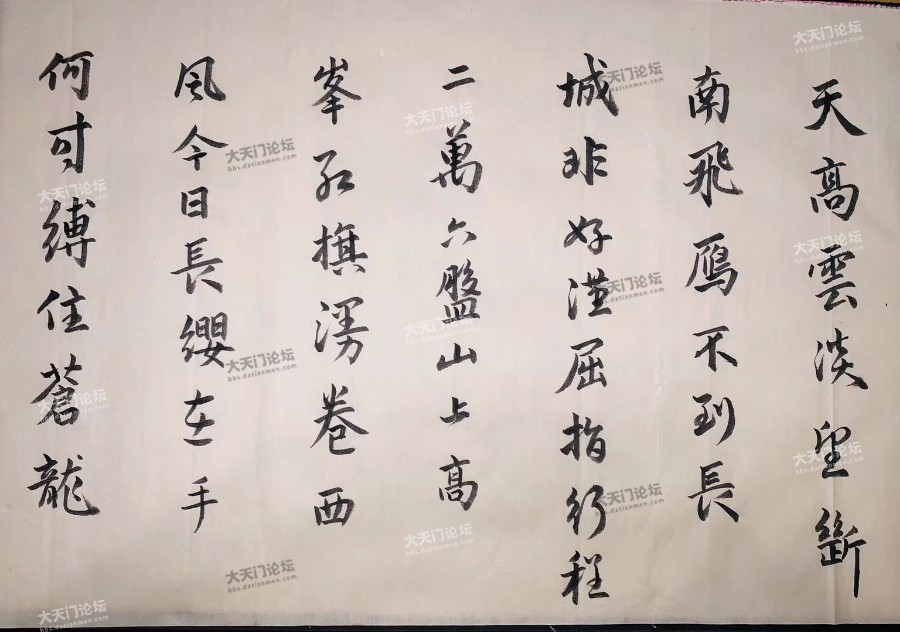 天高雲淡望斷
南飛鴈不到長
城非好漢屈指行程
二萬六盤山上高
峯紅旗漫卷西
風今日長纓在手
何時縛住蒼龍
大天门论坛
bbs.datianmen.com